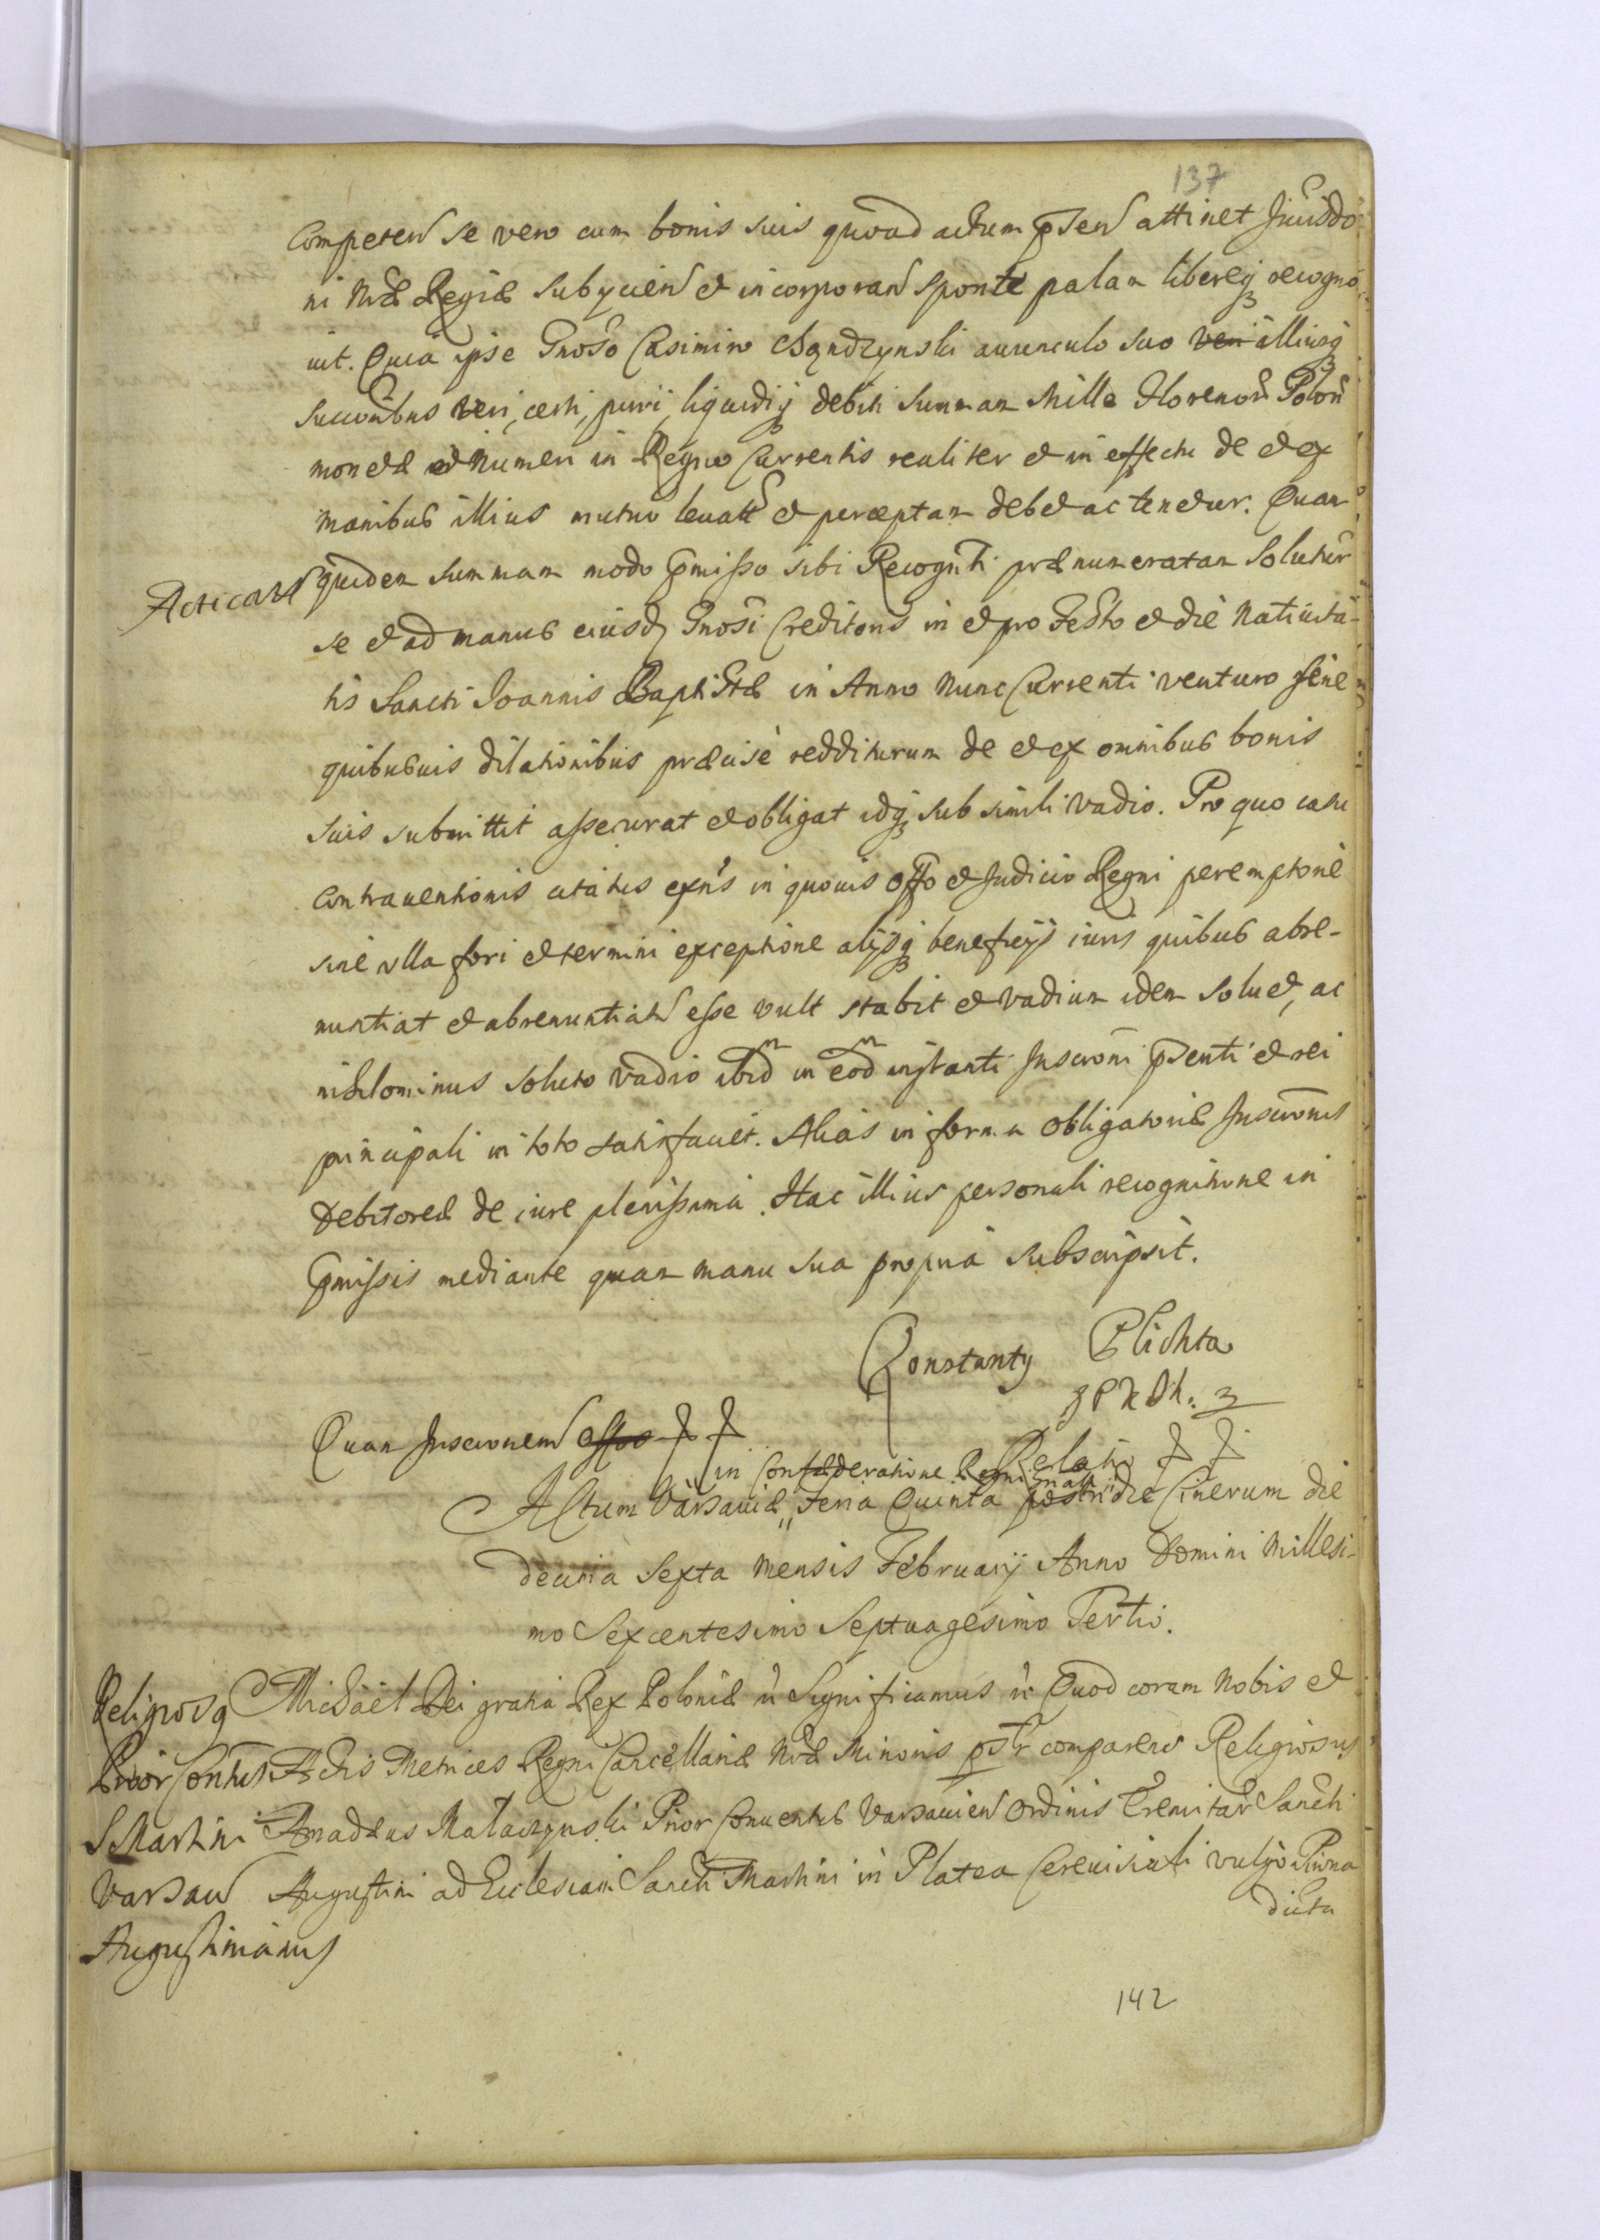 137
Competen se vero cum bonis suis quoad actum pnten attinet Jurisdo
ni Nræ Regiæ subycien et incorporan sponte palam libereq recogno
uit. Quia ipse Gnoso Casimiro Chądzynski auunculo suo veri illiusq
Succoribus veri, certi, puri, liquidiq debiti summam Mille Florenor Polon
monetæ et Numeri in Regno Currentis realiter et in effectu de et ex
manibus illius mutuo leuatt et perceptam debet ac tenetur. Quam
Acticatt quidem summam modo pmisso sibi Recognti prænumeratam Soluturu
se et ad manus eiusd Gnosi Creditoris in et pro Festo et die Natiuita-
tis Sancti Joannis Baptistæ in Anno Nunc Currenti venturo sine
quibusuis dilationibus præcise redditurum de et ex omnibus bonis
suis submittit assecurat et obligat idq sub simili vadio. Pro quo casu
contrauentionis citatus exns in quouis Offo et Judicio Regni peremptorie
sine ulla fori et termini exceptione alysq beneficys iuris quibus abre-
nuntiat et abrenuntiatu esse vult stabit et vadium idem soluet, ac
nihilominus soluto vadio ibid in eod instanti Inscroni pnti et rei
principali in toto satisfaciet. Alias in forma Obligatoriæ Inscronis
Debitoreæ de iure plenissima. Hac illius personali recognitione in
pmissis mediante quam manu sua propria subscripsit.
Konstanty Plichta
Quam Inscronem Offos
Relatio
in Confæderatione Regni Gnali
Actum Varsauiæ Feria Quinta postridie Cinerum die
decima Sexta Mensis February Anno Domini Millesi-
mo Sexcentesimo Septuagesimo Tertio.
Religiosq Michael Dei gratia Rex Poloniæ &c Significamus &c Quod coram Nobis et
Prior Contus Actis Metrices Regni Cancellariæ Nræ Minoris pstr comparens Religiosus
S Martini Amadæus Malaczynski Prior Conuentus Varsauien Ordinis Eremitar Sancti
Varsau Augustini ad Ecclesiam Sancti Martini in Platea Cereuisiali vulgo Piwna
dicta
Augustinianus
142